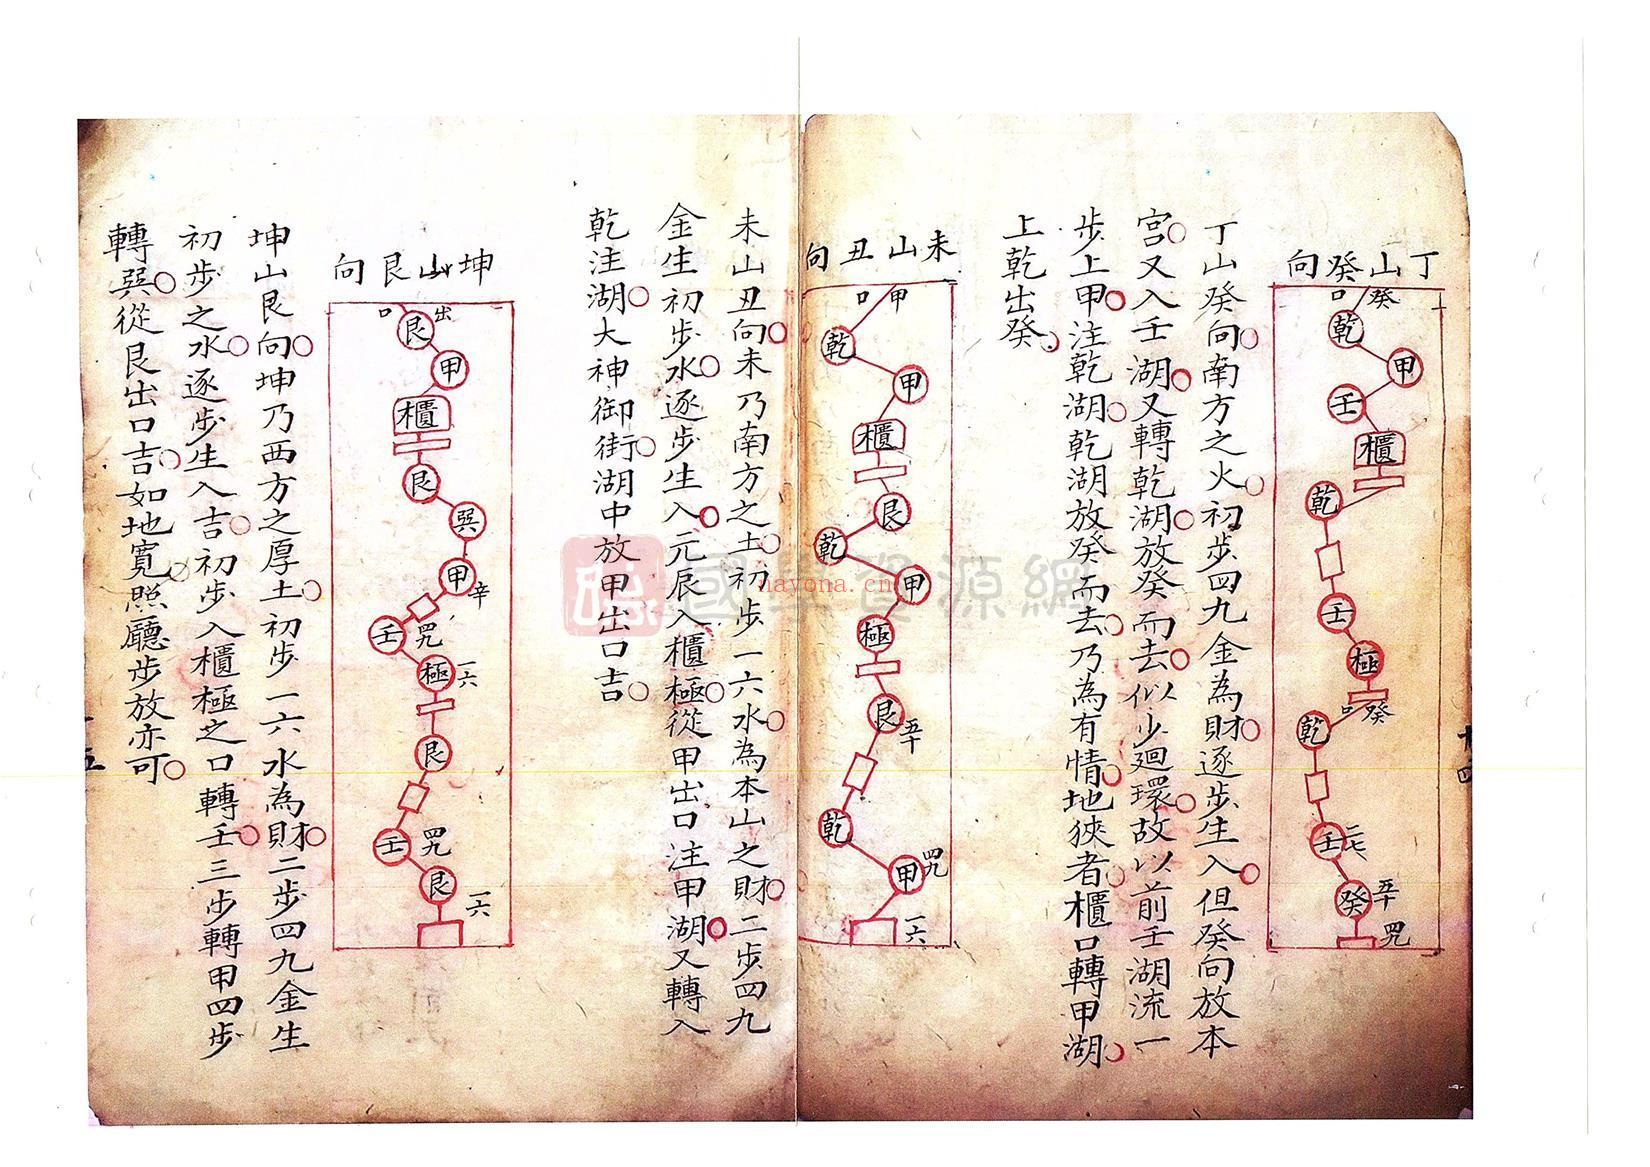 丁山癸向
癸
口
乾
甲
壬
櫃
乾
壬
極
癸
口
乾
壬
二七
癸
五十
四九
丁山癸向南方之火初步四九金為財逐步生入但癸向放本
宮又入壬湖又轉乾湖放癸而去似少廻環故以前壬湖流一
步上甲注乾湖乾湖放癸而去乃為有情地狹者櫃口轉甲湖
上乾出癸
十四
未山丑向
甲
口
乾
甲
櫃
艮
乾
甲
極
艮
五十
乾
甲
四九
一六
未山丑向未乃南方之土初步一六水為本山之財二步四九
金生初步水逐步生入元辰入櫃極從甲出口注甲湖又轉入
乾注湖大神御街湖中放甲出口吉
坤山艮向
出
口
艮
甲
櫃
艮
巽
甲
辛
壬
四九
極
一六
艮
壬
四九
艮
一六
坤山艮向坤乃西方之厚土初步一六水為財二步四九金生
初步之水逐步生入吉初步入櫃極之口轉壬三步轉甲四步
轉巽從艮出口吉如地寬照廳步放亦可
五
國學資源網
nayona.cn